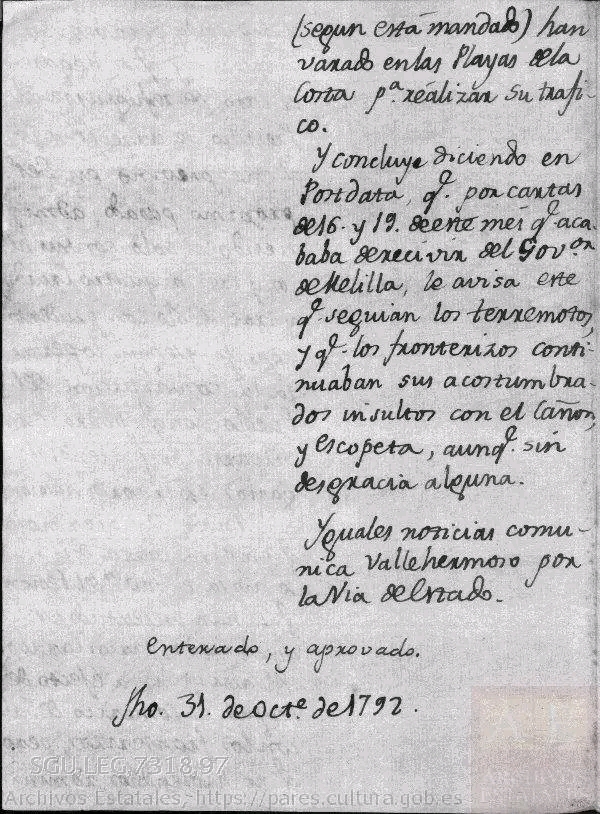 (segun está mandado) han
varado en las Playas de la
Costa p.ª realizar su trafi-
co.
Y concluye diciendo en
Postdata, q.e por cartas
de 16. y 19. de este mes q.e aca-
baba de recivir del Gov.or
de Melilla, le avisa este
q.e seguian los terremotos,
y q.e los fronterizos conti-
nuaban sus acostumbra-
dos insultos con el Cañon,
y escopeta, aunq.e sin
desgracia alguna.
Yguales noticias comu-
nica Vallehermoso por
la Via de Estado.
enterado, y aprovado.
fho. 31. de Oct.e de 1792.
SGU,LEG,7318,97
Archivos Estatales, https://pares.cultura.gob.es